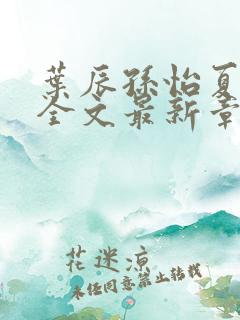 葉辰孫怡夏
全文最新章
花迷凉
未经同意禁止转载